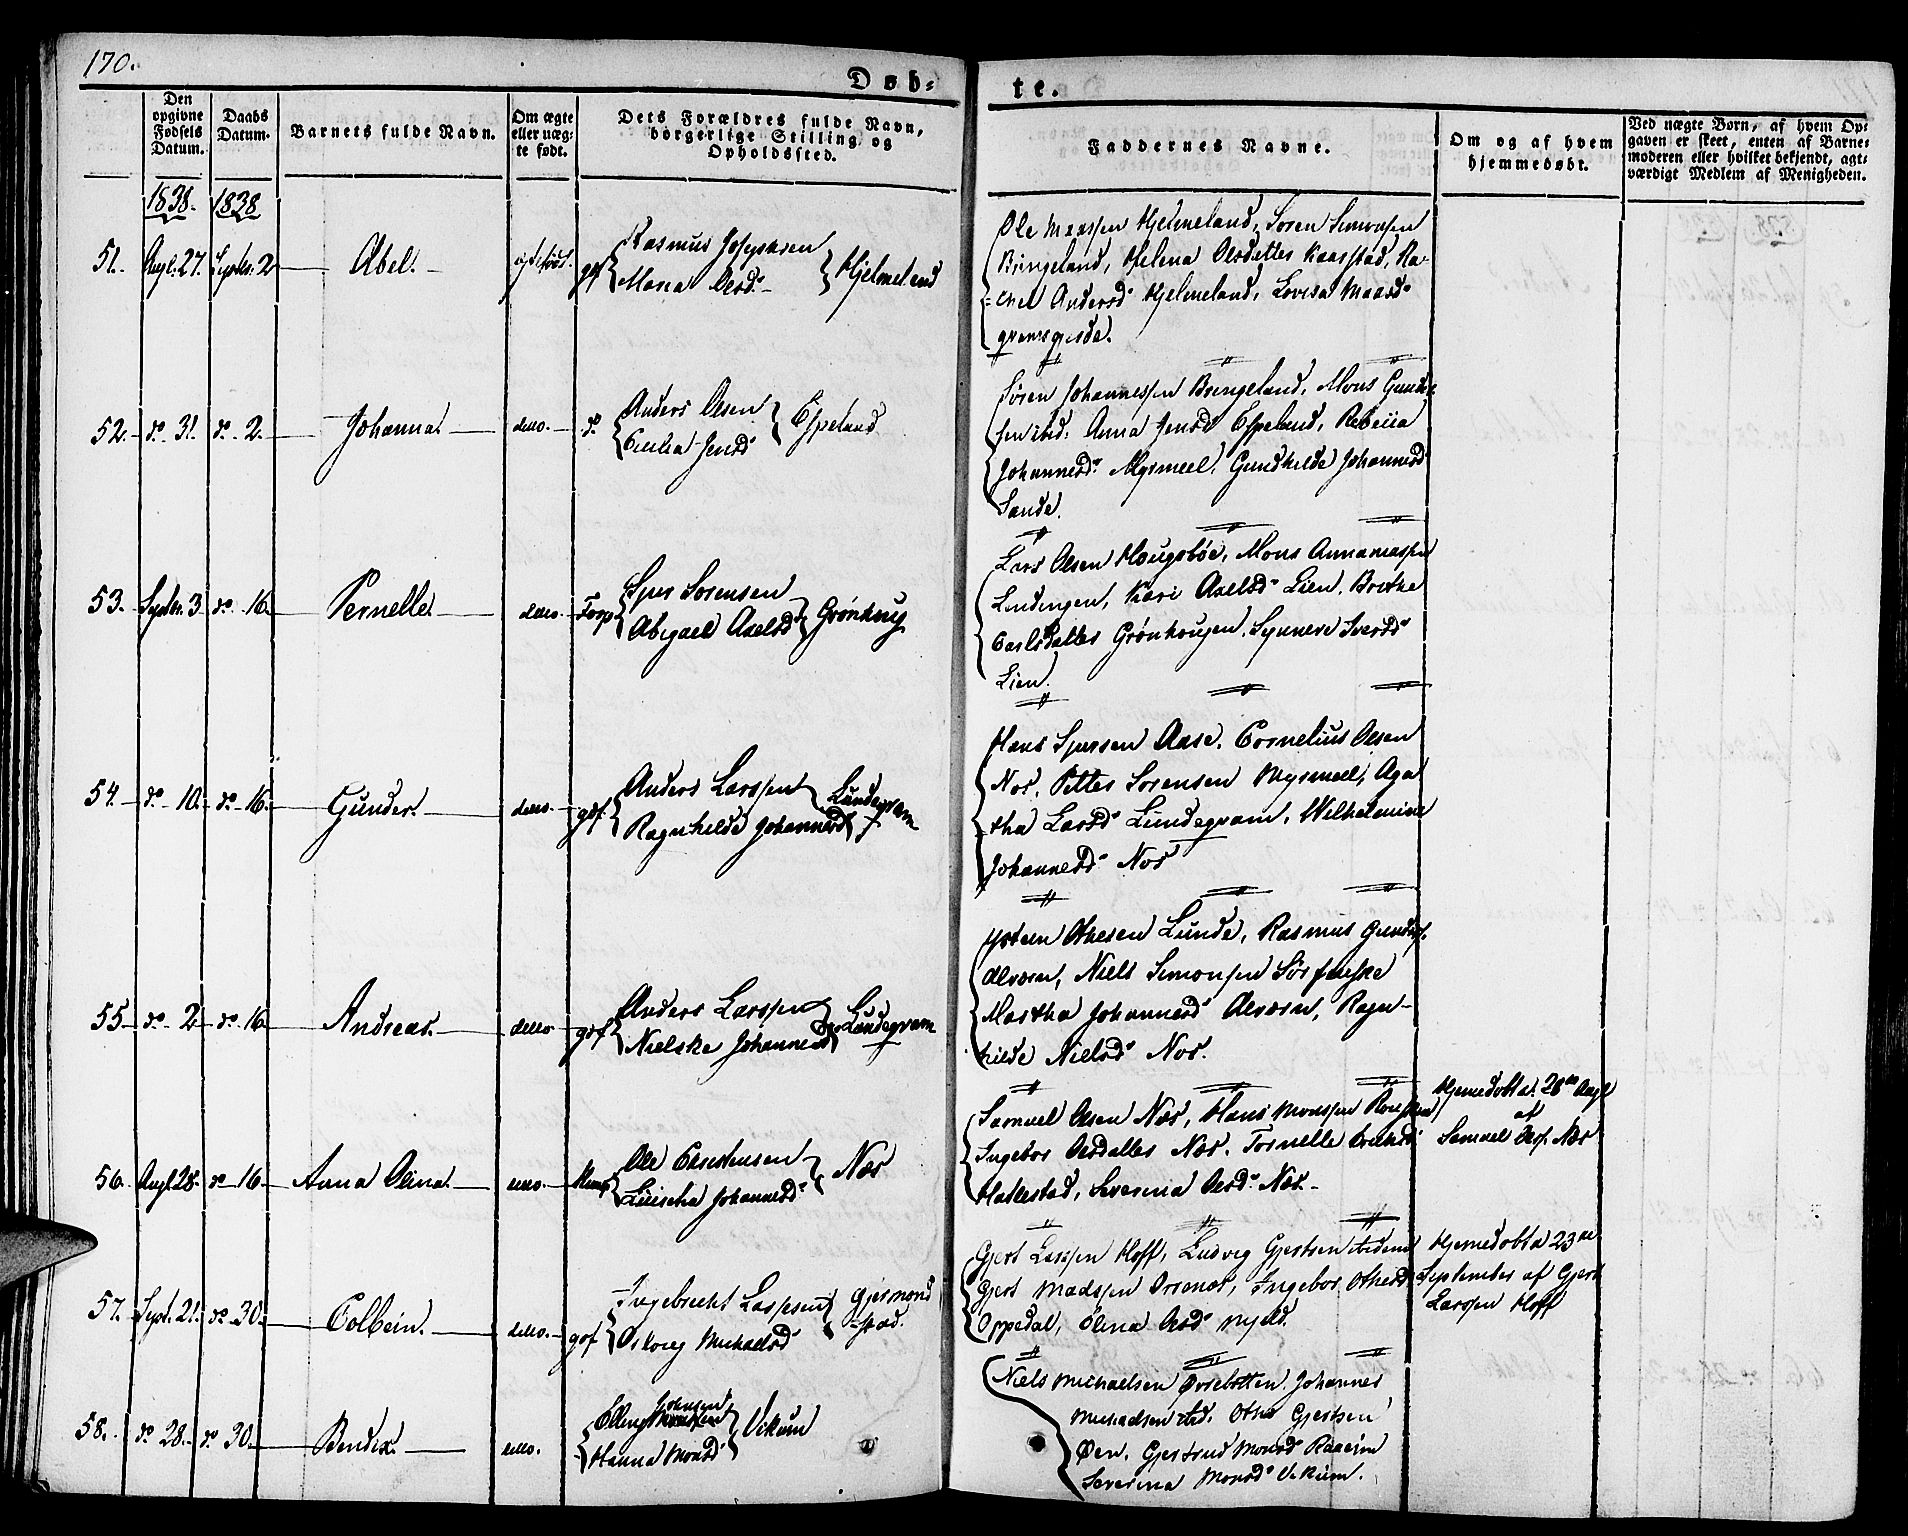 170.
Døb-
te.
Den opgivne Fødsels Datum.
Daabs Datum.
Barnets fulde Navn.
Om ægte eller uægte født.
Dets Forældres fulde Navn, borgerlige Stilling og Opholdssted.
Faddernes Navne.
Om og af hvem hjemmedøbt.
Ved uægte Børn, af hvem Opgaven er skeet, enten af Barnemoderen eller hvilket bekjendt, agtværdigt Medlem af Menigheden.
1838. 1838
51. Augl. 27. Septbr. 2 Abel. ægtefødt. gf Rasmus Josephsen
Maria Olesd. Hjelmeland
Ole Maassen Hjelmeland, Søren Simonsen
Bringeland, Helena Olesdatter Kaarstad, Ra-
chel Andersd. Hjelmeland, Lovisa Maasd.
52. do 31. do 2. Johanna. ditto. d. Anders Olsen
Cecilia Jensd. Espeland
Søren Johannessen Bringeland, Mons Gunder-
sen ibid. Anna Jensd. Espeland, Rebecca
Johannesd. Mysmeel, Gundhilde Johannesd.
Sande.
53. Septbr. 3 do 16. Pernelle. ditto. Sjur Sørensen
Abigael Axelsd. Grønhug
Lars Olsen Hougsbøe, Mons
Lindingen, Kari Axelsd. Lien, Brithe
Carlsdatter Grønhougen, Synneve Sversd.
Lien.
54. do 10. do 16. Gunder. ditto. gdf. Anders Larssen
Ragnhilde Johannesd. Lundegram
Hans Sjursen Aase, Cornelius Olsen
Nor, Petter Sørensen Mysmeel, Aga-
tha Larsd. Lundegram, Wilhelmine
Johannesd. Nor
55 do 2 do 16 Andreas. ditto gdf Anders Larssen
Nielske Johannesd. Lundegram
Othesen Lunde, Rasmus Gunders.
Niels Simonsen
Martha Johannesd. Ragn-
hilde Nielsd. Nor.
56. Augl. 28. do 16. Anna Olina. ditto. Ole Christensen
Johannesd. Nær
Samuel Olsen Nær, Hans Monssen
Ingebor Olesdatter Nær,
Hatlestad, Severina Olesd. Nær.
Hjemedøbt d. 28de Augl
af
Samuel Olss. Nær
57. Septb. 21. do 30. Colbein. ditto. gdf Ingebrecht Larssen
Michaelsd. Gjermond-
stad.
Gjert Larssen Hoff, Ludvig Gjertsen ibidem
Gjert Madssen Ingebor Othesd.
Oppedal, Olina Olesd.
Hjemedøbt d. 23de
September af Gjert
Larssen Hoff
58. do 28. do 30. Bendix. ditto. Johnsen
Hanna Monsd. Vikum
Niels Michaelsen Øvrebotten, Johannes
Michaelsen ibd. Otho Gjertsen
Øen, Gjertrud Monsd.
Severina Monsd. Vikum.